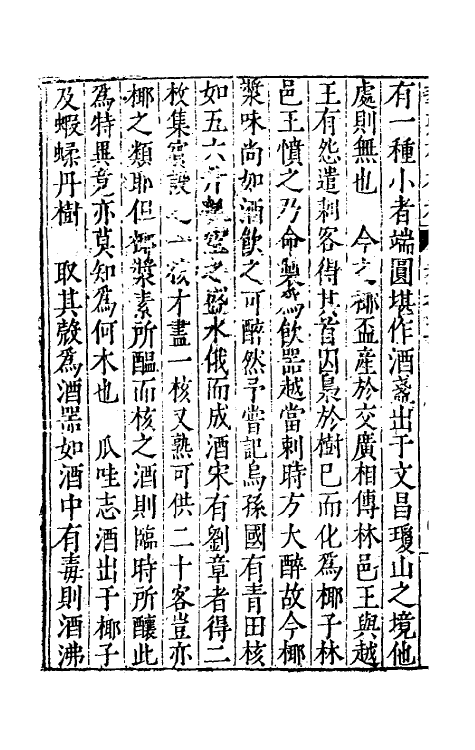 有一種小者端圓堪作酒盞出于文昌瓊山之境他
處則無也　今之椰盃產於交廣相傳林邑王與越
王有怨遣刺客得其首因梟於樹已而化爲椰子林
邑王憤之乃命製爲飲器越當刺時方大醉故今椰
漿味尚如酒飲之可醉然予嘗記烏孫國有青田核
如五六升瓠空之盛水俄而成酒宋有劉章者得二
枚集賓設之一核才盡一核又熟可供二十客豈亦
椰之類耶但椰漿素所醞而核之酒則臨時所釀此
爲特異竟亦莫知爲何木也　瓜哇志酒出于椰子
及蝦蝚丹樹　取其殼爲酒器如酒中有毒則酒沸